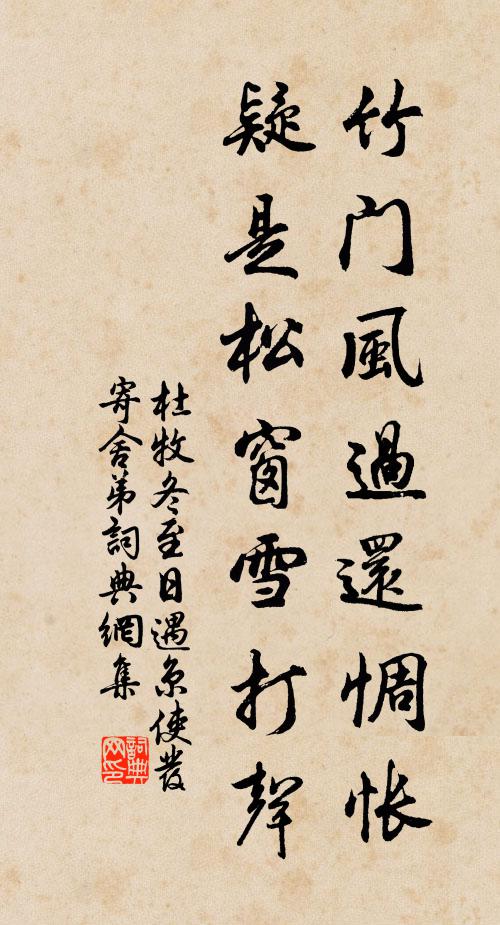 竹门風過還惆怅
疑是松窗雪打聲
杜牧冬至日遇京使發
寄舍弟詞典網集
詞典网印